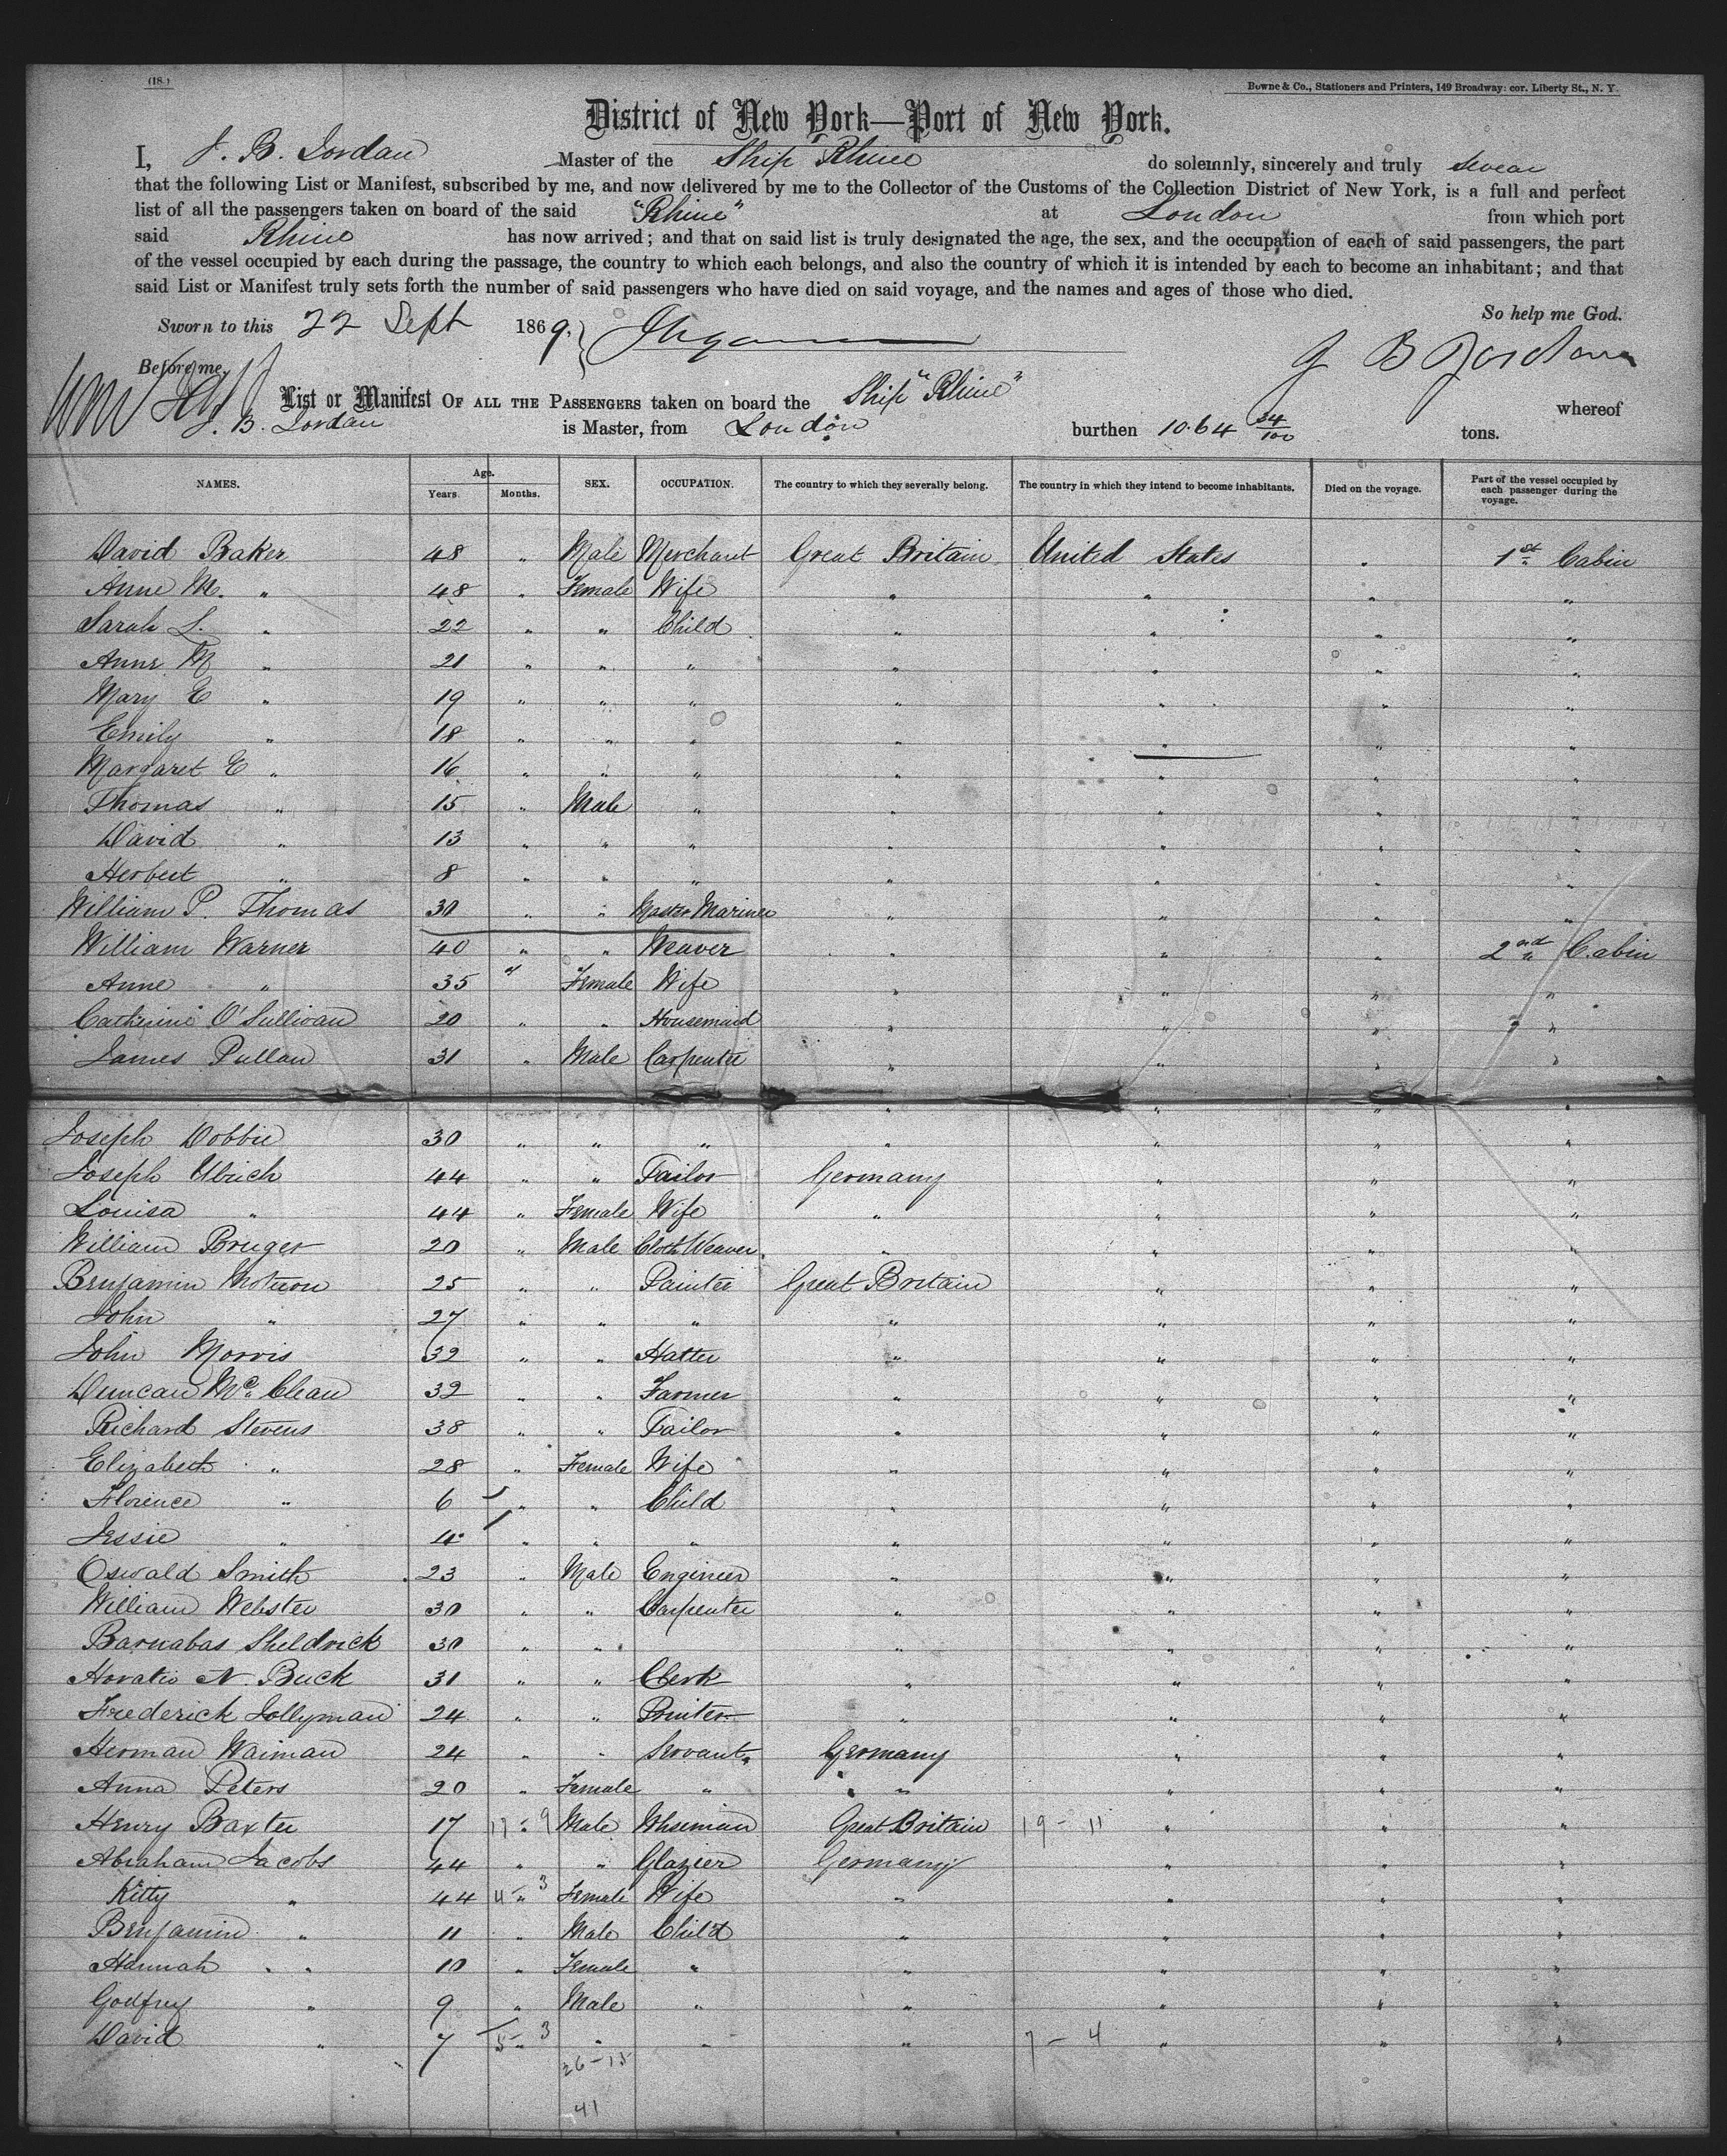 (18.)
Bowne & Co., Stationers and Printers, 149 Broadway: cor. Liberty St., N. Y.
District of New York—Port of New York.
I, J. B. Jordan Master of the Ship Rhine do solemnly, sincerely and truly swear
that the following List or Manifest, subscribed by me, and now delivered by me to the Collector of the Customs of the Collection District of New York, is a full and perfect
list of all the passengers taken on board of the said "Rhine" at London from which port
said Rhine has now arrived; and that on said list is truly designated the age, the sex, and the occupation of each of said passengers, the part
of the vessel occupied by each during the passage, the country to which each belongs, and also the country of which it is intended by each to become an inhabitant; and that
said List or Manifest truly sets forth the number of said passengers who have died on said voyage, and the names and ages of those who died.
So help me God.
Sworn to this 22 Sept 1869.
J B Jordan
Before me,
List or Manifest OF ALL THE PASSENGERS taken on board the Ship "Rhine" whereof
J. B. Jordan is Master, from London burthen 1064 34/100 tons.
NAMES. Age. Years. Months. SEX. OCCUPATION. The country to which they severally belong. The country in which they intend to become inhabitants. Died on the voyage. Part of the vessel occupied by each passenger during the voyage.
David Baker 48 " Male Merchant Great Britain United States " 1st Cabin
Anne M. " 48 " Female Wife " " " "
Sarah L. " 22 " " Child " " " "
Anne M " 21 " " " " " " "
Mary E " 19 " " " " " " "
Emily " 18 " " " " " " "
Margaret E " 16 " " " " " " "
Thomas " 15 " Male " " " " "
David " 13 " " " " " " "
Herbert " 8 " " " " " " "
William P. Thomas 30 " " Master Mariner " " " "
William Warner 40 " " Weaver " " " 2nd Cabin
Anne " 35 " Female Wife " " " "
Catherine O'Sullivan 20 " " Housemaid " " " "
James Pullan 31 " Male Carpenter " " " "
Joseph Dobbie 30 " " " " " " "
Joseph Ulrich 44 " " Tailor Germany " " "
Louisa " 44 " Female Wife " " " "
William Bruger 20 " Male Cloth Weaver " " " "
Benjamin 25 " " Painter Great Britain " " "
John " 27 " " " " " " "
John Morris 32 " " Hatter " " " "
Duncan McClean 32 " " Farmer " " " "
Richard Stevens 38 " " Tailor " " " "
Elizabeth " 28 " Female Wife " " " "
Florence " 6 " " Child " " " "
Jessie " 4 " " " " " " "
Oswald Smith 23 " Male Engineer " " " "
William Webster 30 " " Carpenter " " " "
Barnabas Sheldrick 30 " " " " " "
Horatio N. Buck 31 " " Clerk " " " "
Frederick Jollyman 24 " " Printer " " " "
Herman Waiman 24 " " Servant Germany " " "
Anna Peters 20 " Female " " " " "
Henry Baxter 17 17 " 9 Male Great Britain 19 - 11 " " "
Abraham Jacobs 44 " " Glazier Germany " " "
Kitty " 44 4 " 3 Female Wife " " " "
Benjamin " 11 " Male Child " " " "
Hannah " 10 " Female " " " " "
Godfrey " 9 " Male " " " " "
David " 7 5 " 3 " " " 7 - 4 " " "
26-15
41